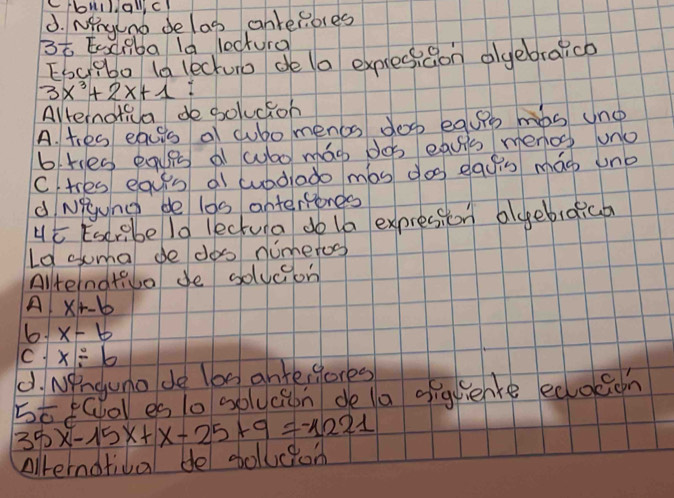 d. Ninguno de las anteriores
3= Escriba la lectura
Escriba la lectura de la expresición algebraico
3x³+2x+1:
Alternativa de solución
A. tres equis al cubo menos dos equis más uno
b. tres equis al cubo más dos equis menos uno
C. tres equis al cuadrado más dos equis más uno
d. Niguna de las anteriores
4= Escribe la lectura de la expresión algebraica
La suma de dos números
Alternativa de solución
A. x+b
b. x-b
C. x÷b
d. Ninguno de los anteriores
5= ¿Cual es la solución de la siguiente ecuación
35x-15x+x-25+9=-1221
Alternativa de solución